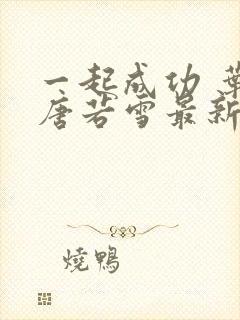 一起成功 葉
唐若雪最新
燒鴨